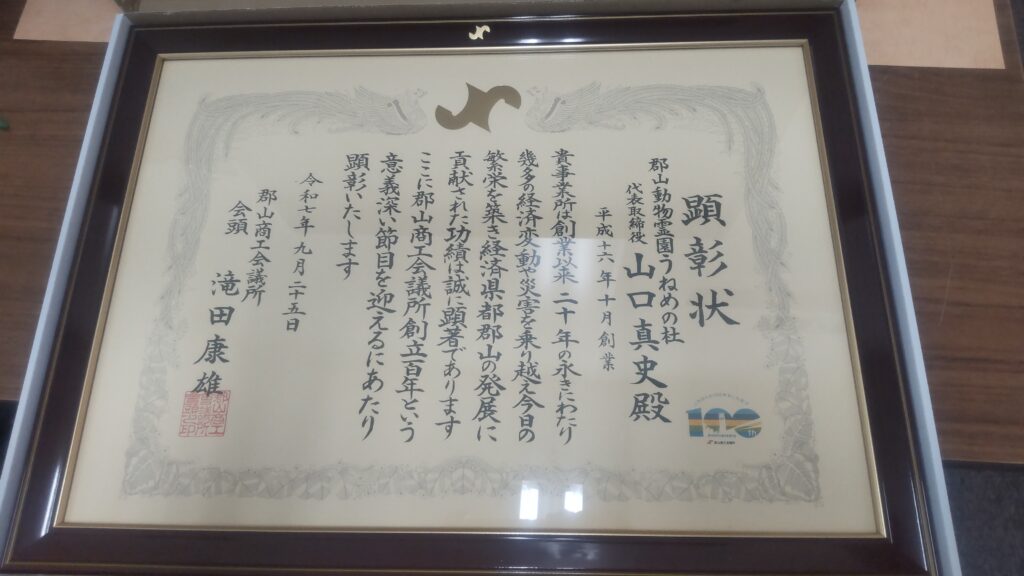 顕彰状
郡山動物霊園うねめの杜
代表取締役 山口真史殿
平成十六年十月創業
貴事業所は創業以来二十年の永きにわたり
幾多の経済変動や災害を乗り越え今日の
繁栄を築き経済県都郡山の発展に
貢献された功績は誠に顕著であります
ここに郡山商工会議所創立百年という
意義深い節目を迎えるにあたり
顕彰いたします
令和七年九月二十五日
郡山商工会議所
会頭 滝田康雄
100th